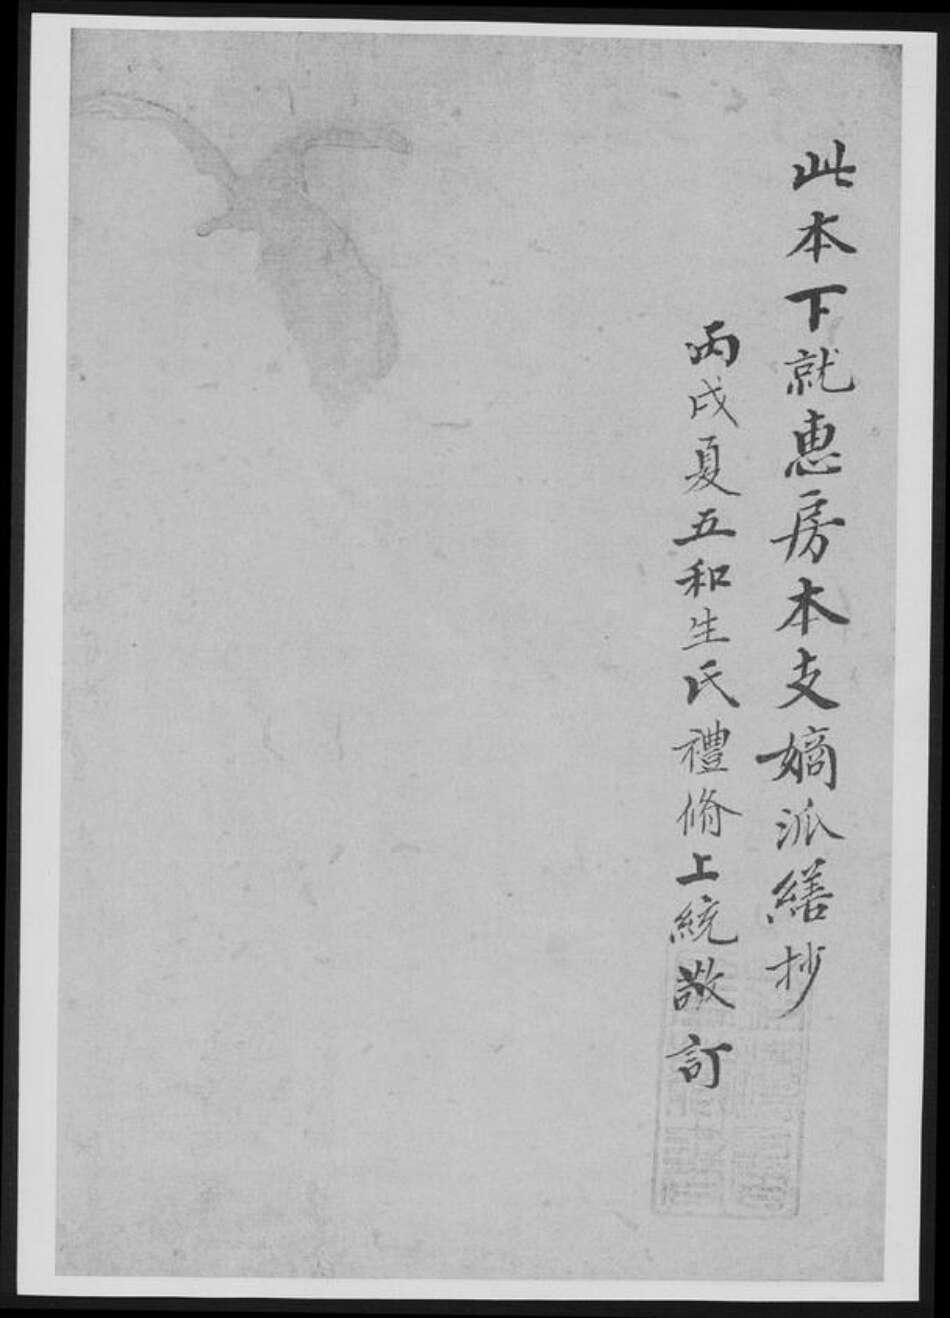 此本下就惠房本支嫡派繕抄
丙戌夏五和生氏禮脩上統敬訂